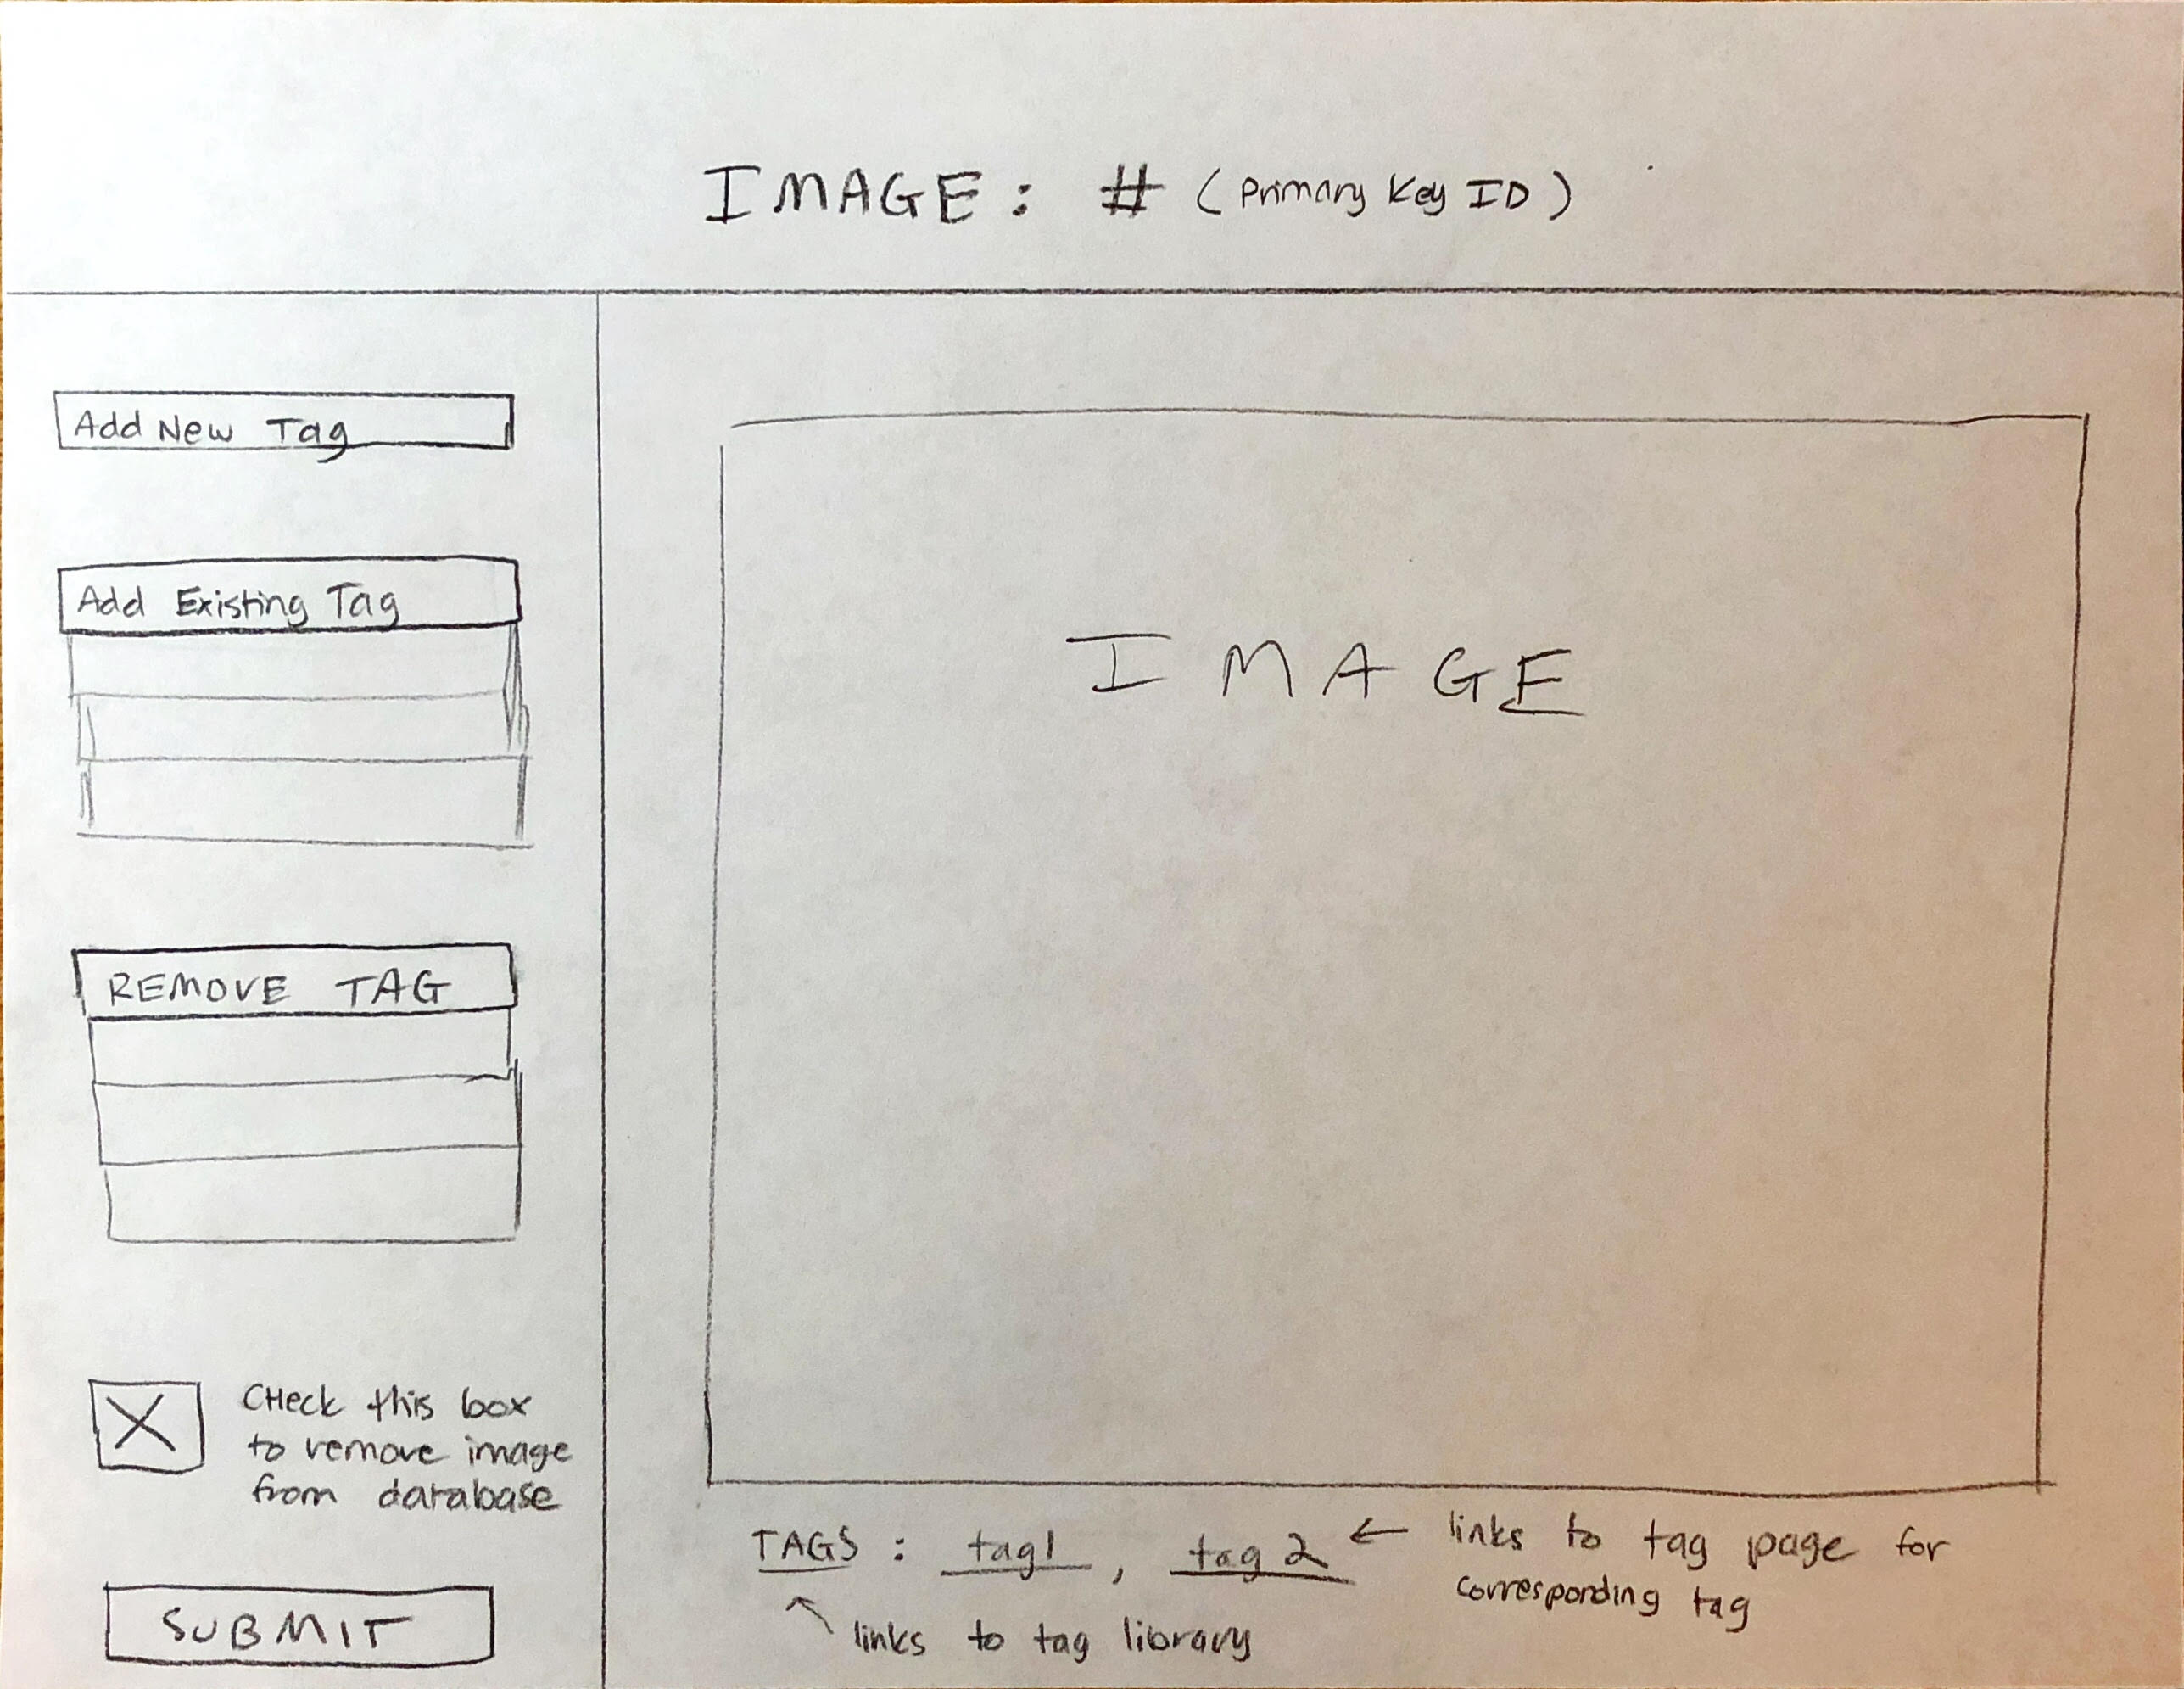 IMAGE: # (Primary Key ID)
Add New Tag
Add Existing Tag
REMOVE TAG
CHeck this box
to remove image
from database
SUBMIT
IMAGE
TAGS : tag1, tag 2 ← links to tag page for
corresponding tag
links to tag library